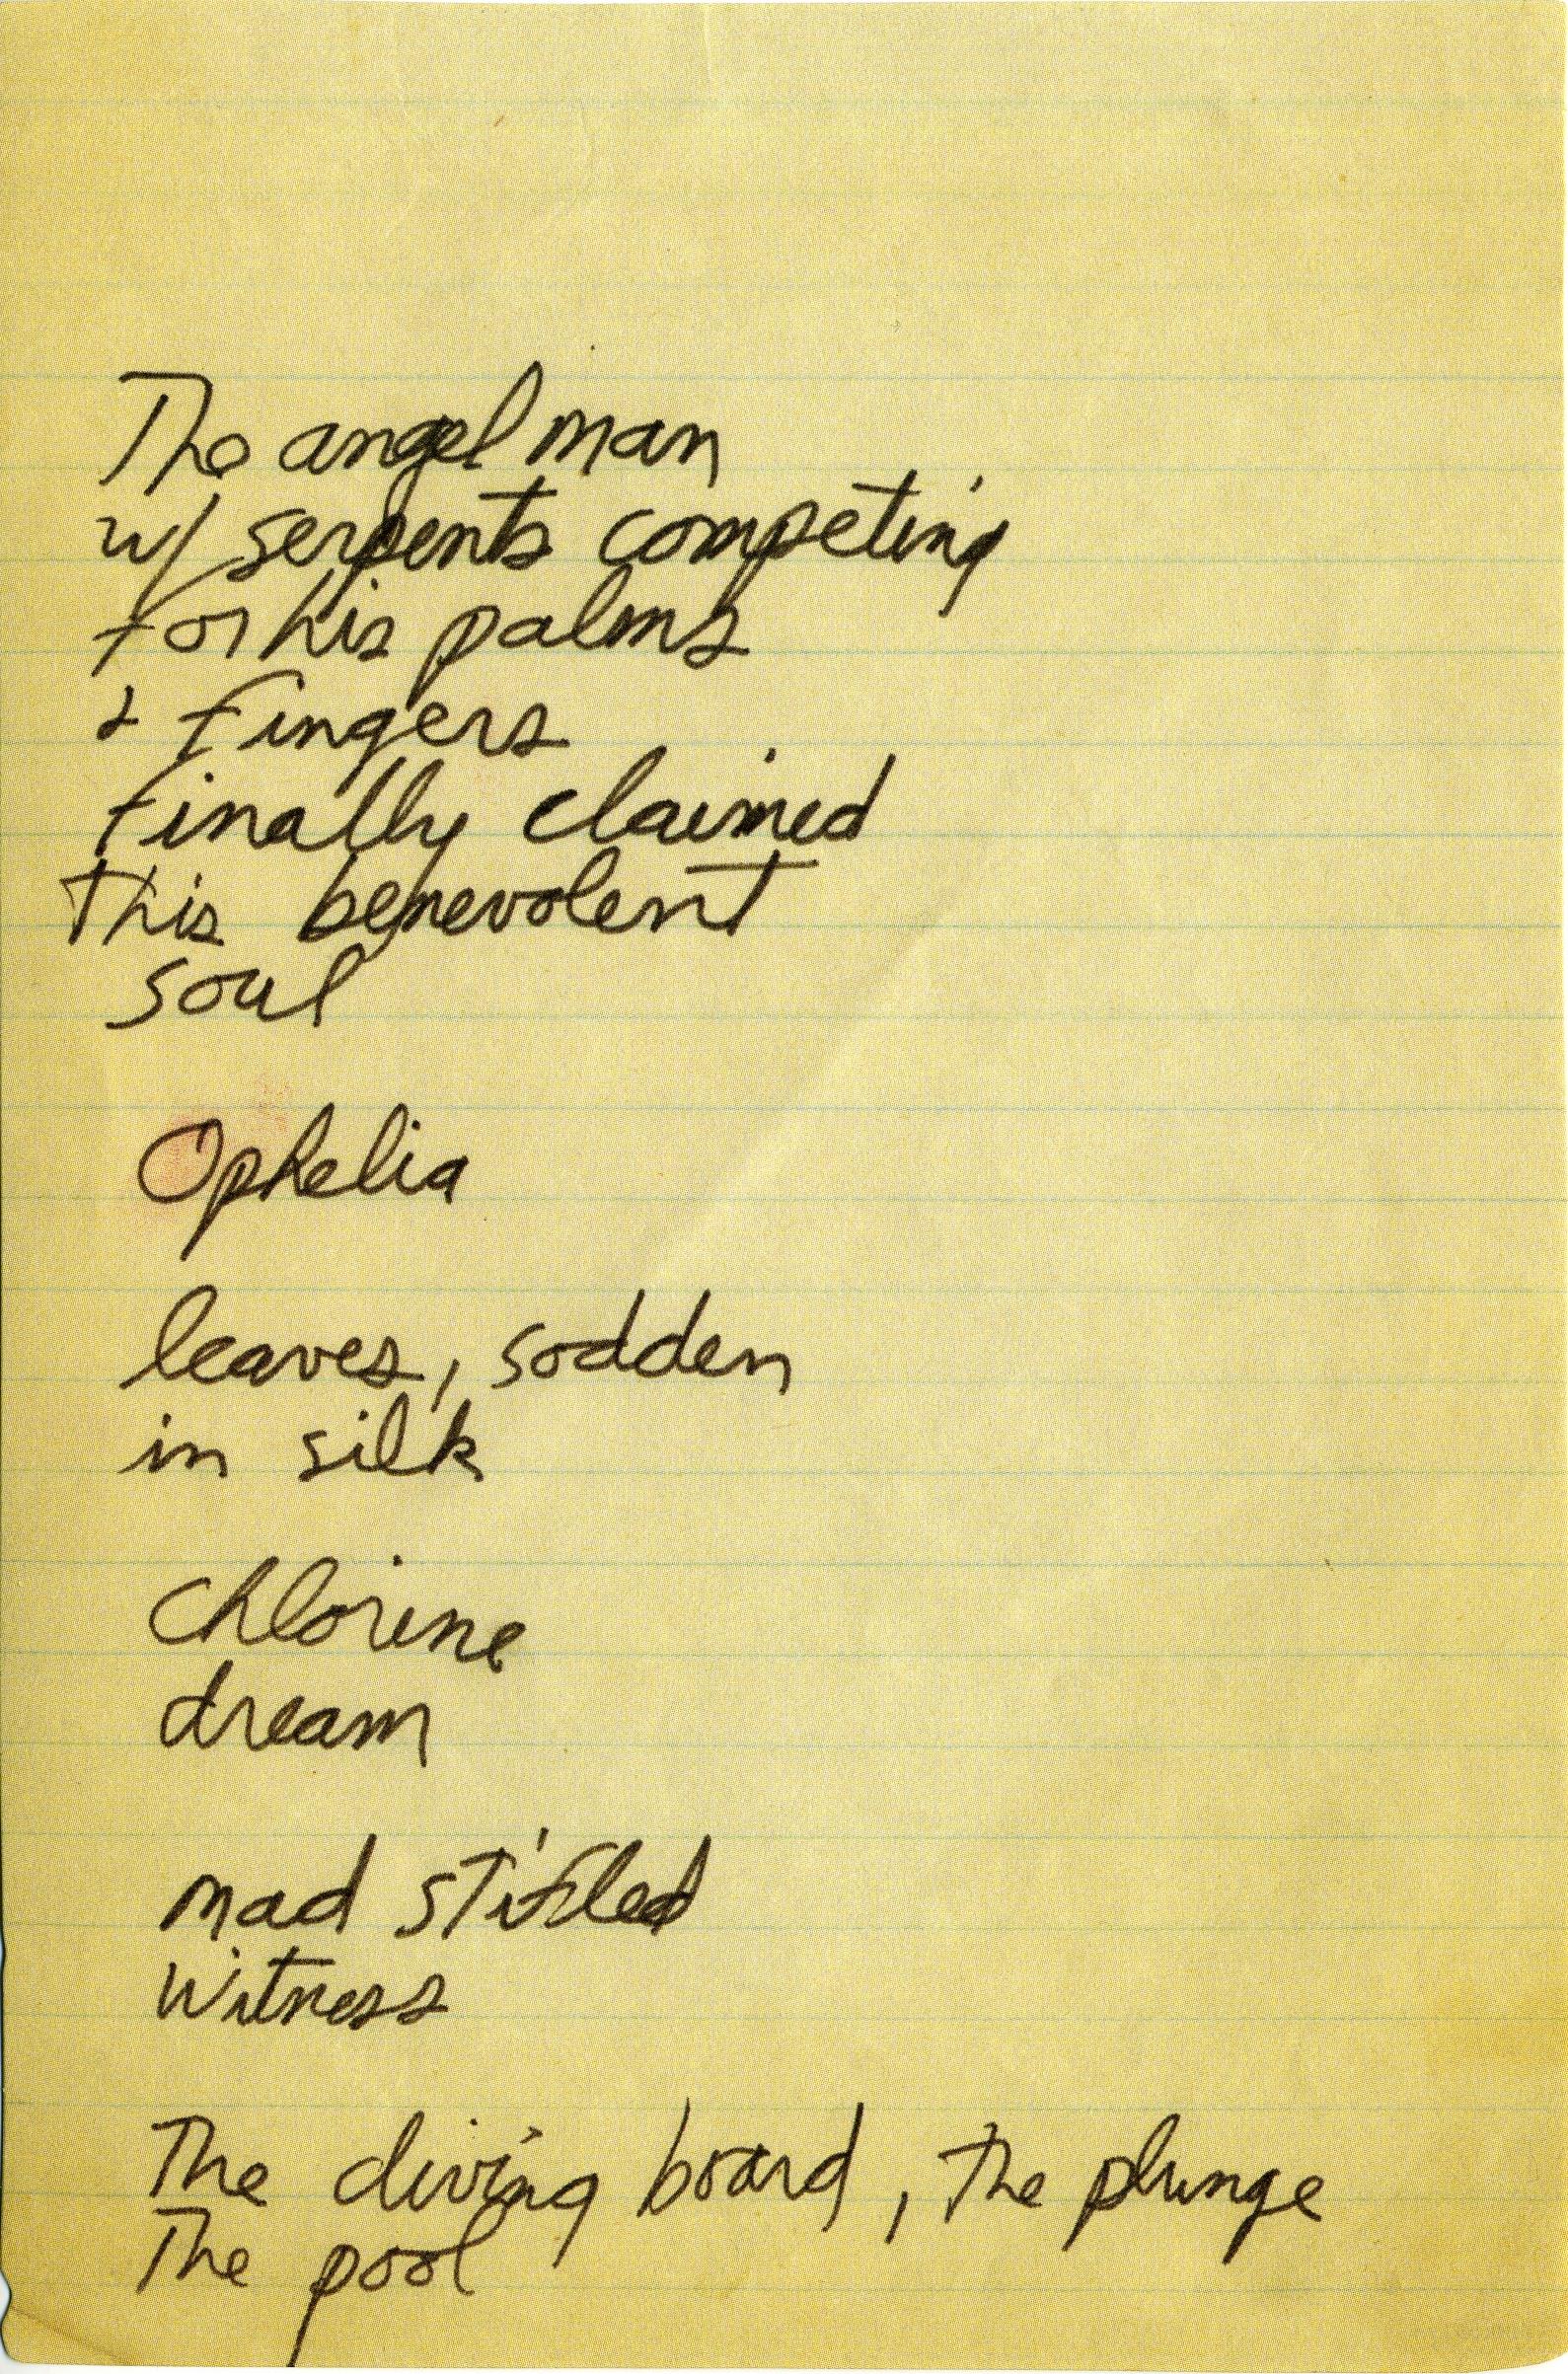 The angel man
w/ serpents competing
for his palms
& fingers
Finally claimed
This benevolent
soul
Ophelia
leaves, sodden
in silk
Chlorine
dream
mad stifled
Witness
The diving board, The plunge
The pool